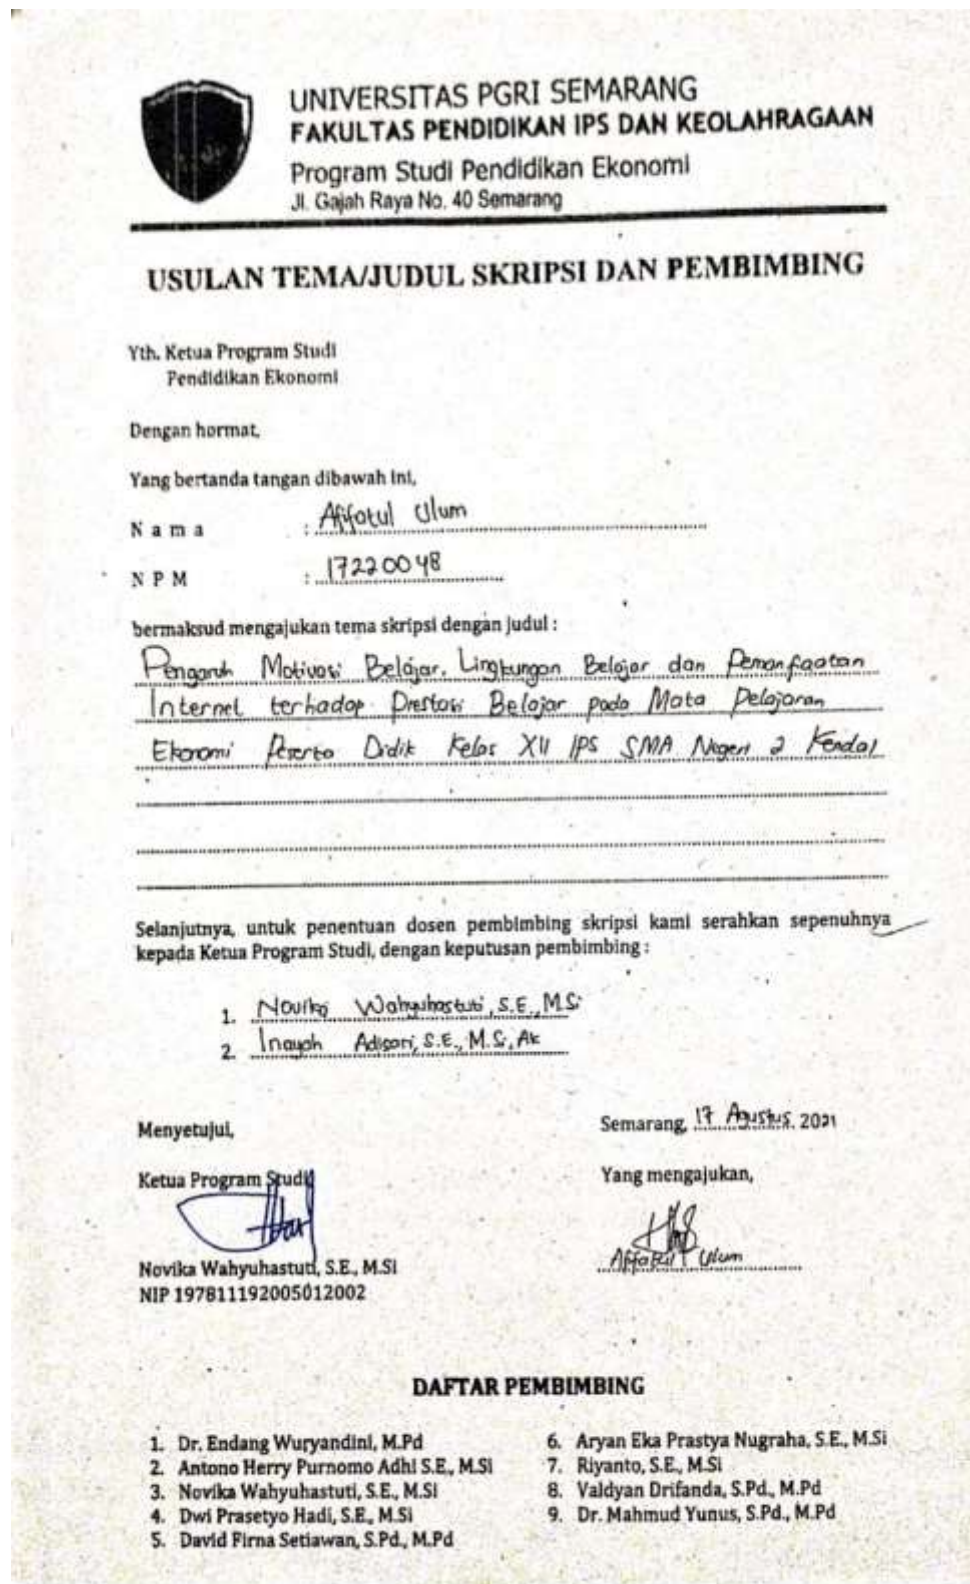 UNIVERSITAS PGRI SEMARANG
FAKULTAS PENDIDIKAN IPS DAN KEOLAHRAGAAN
Program Studi Pendidikan Ekonomi
Jl. Gajah Raya No. 40 Semarang
USULAN TEMA/JUDUL SKRIPSI DAN PEMBIMBING
Yth. Ketua Program Studi
Pendidikan Ekonomi
Dengan hormat,
Yang bertanda tangan dibawah ini,
N a m a : Afifatul Ulum
N P M : 17220048
bermaksud mengajukan tema skripsi dengan judul :
Pengaruh Motivasi Belajar, Lingkungan Belajar dan Pemanfaatan
Internet terhadap Prestasi Belajar pada Mata Pelajaran
Ekonomi Peserta Didik Kelas XII IPS SMA Negeri 2 Kendal
Selanjutnya, untuk penentuan dosen pembimbing skripsi kami serahkan sepenuhnya
kepada Ketua Program Studi, dengan keputusan pembimbing :
1. Novika Wahyuhastuti, S.E., M.Si
2. Inayah Adisari, S.E., M.Si, Ak
Menyetujui,
Semarang, 17 Agustus 2021
Ketua Program Studi
Yang mengajukan,
Novika Wahyuhastuti, S.E., M.Si
NIP 197811192005012002
Afifatul Ulum
DAFTAR PEMBIMBING
1. Dr. Endang Wuryandini, M.Pd
2. Antono Herry Purnomo Adhi S.E., M.Si
3. Novika Wahyuhastuti, S.E., M.Si
4. Dwi Prasetyo Hadi, S.E., M.Si
5. David Firna Setiawan, S.Pd., M.Pd
6. Aryan Eka Prastya Nugraha, S.E., M.Si
7. Riyanto, S.E., M.Si
8. Valdyan Drifanda, S.Pd., M.Pd
9. Dr. Mahmud Yunus, S.Pd., M.Pd